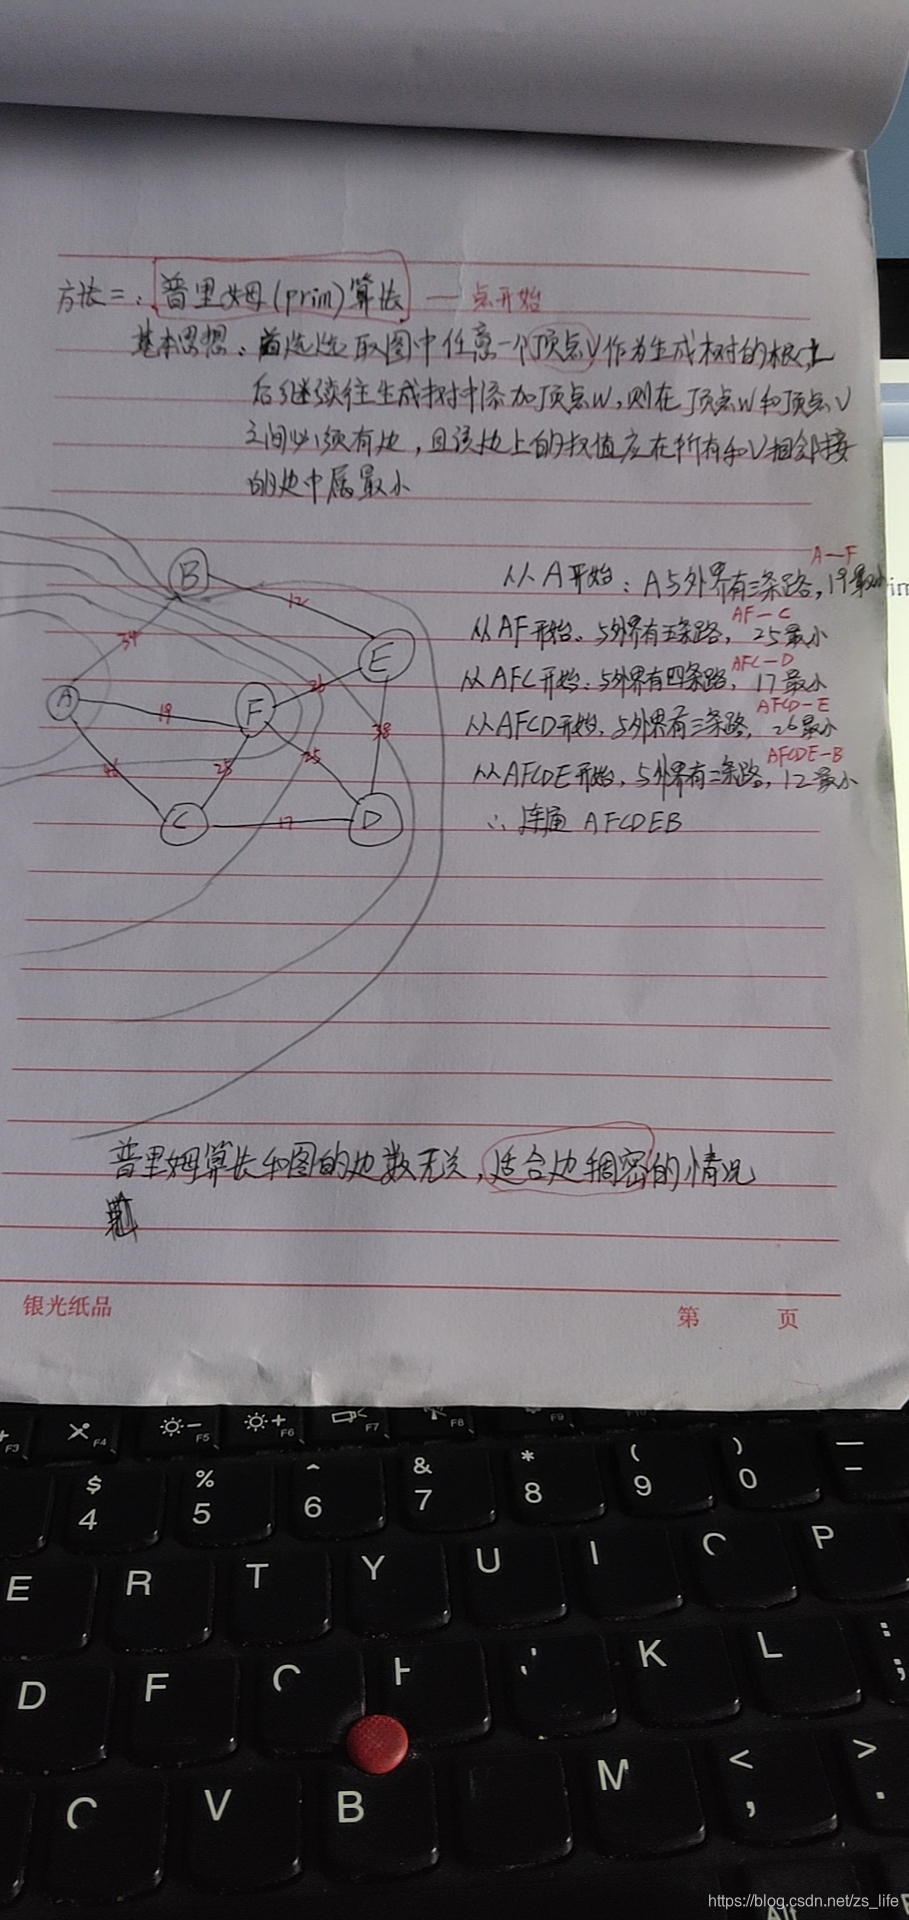 方法二:普里姆(prim)算法 — 点开始
基本思想:首先选取图中任意一个顶点V作为生成树的根,之
后继续往生成树中添加顶点W,则在顶点W和顶点V
之间必须有边,且该边上的权值应在所有和V相邻接
的边中属最小
B
12
34
E
A
26
19
F
38
46
25
25
C
17
D
A—F
从A开始:A与外界有三条路,19最小
AF—C
从AF开始,与外界有五条路,25最小
AFC—D
从AFC开始:与外界有四条路,17最小
AFCD—E
从AFCD开始,与外界有三条路,26最小
AFCDE-B
从AFCDE开始,与外界有二条路,12最小
∴ 连通 AFCDEB
普里姆算法和图的边数无关,适合边稠密的情况
银光纸品
第 页
F3 F4 F5 F6 F7 F8 F9
$ % ^ & * ( ) —
4 5 6 7 8 9 0 -
E R T Y U I O P
D F K L : ;
C V B M < , > .
Alt
https://blog.csdn.net/zs_life